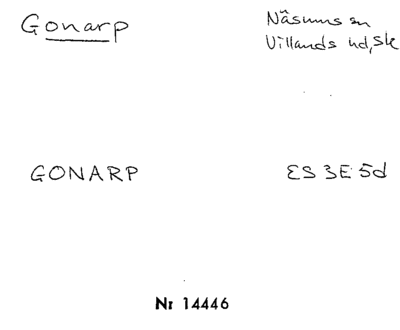 Gonarp
Näsums sn
Villands hd, Sk
GONARP
ES 3E 5d
Nr 14446